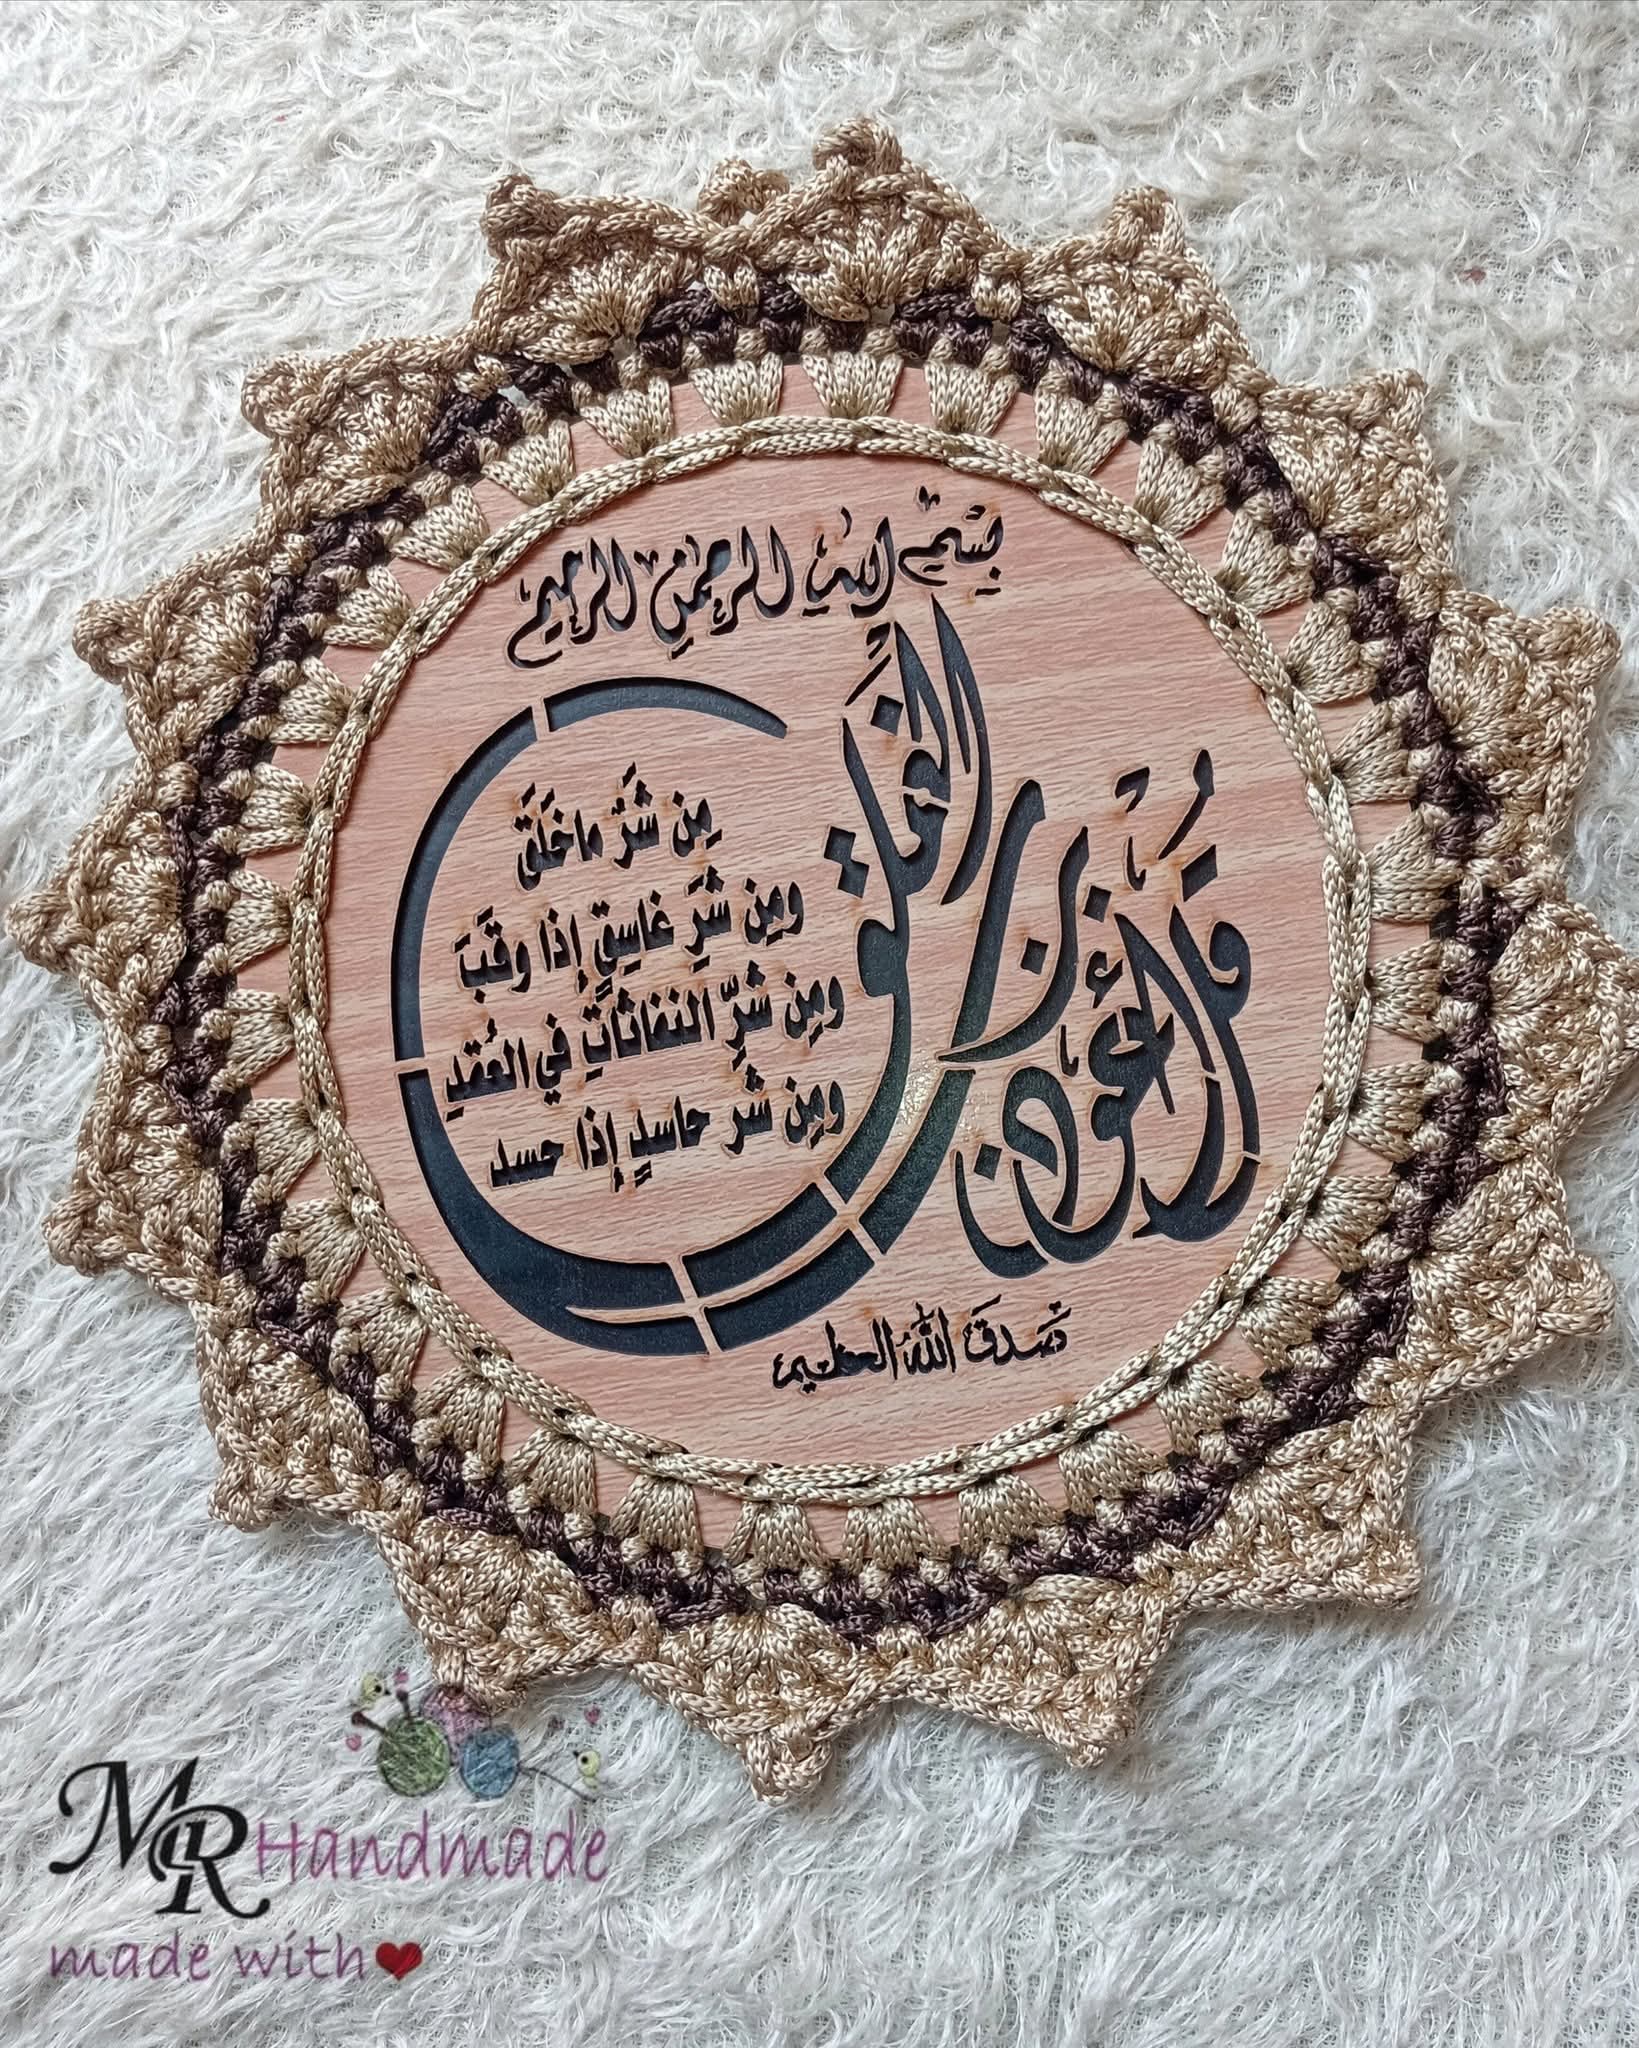 بِسْمِ اللهِ الرحمنِ الرحيم
قُلْ أَعُوذُ بِرَبِّ الفَلَقِ
مِن شَرِّ ما خَلَقَ
ومِن شَرِّ غاسِقٍ إِذا وقَبَ
ومِن شَرِّ النفاثاتِ في العُقدِ
ومِن شر حاسدٍ إِذا حسد
صَدَقَ اللهُ العظيم
MR Handmade
made with